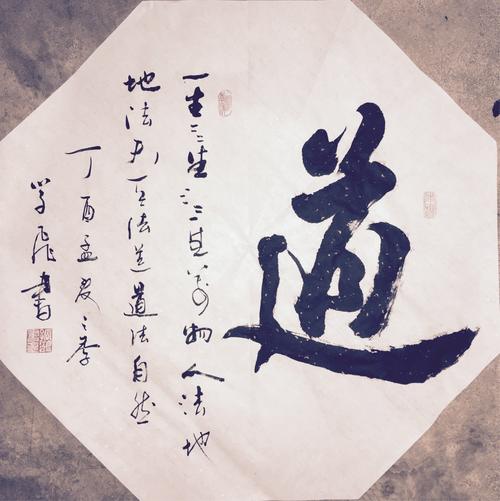 道
一生二二生三三生萬物人法地
地法天天法道道法自然
丁酉孟夏之季
学飛書